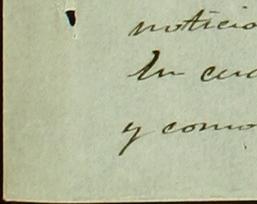 noticia
En cua
y como